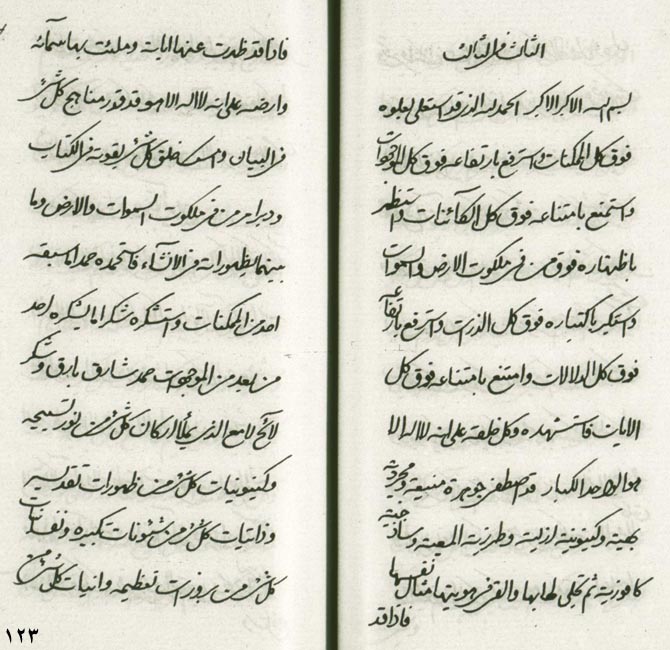 الثالث فی الثالث
بسم الله الاکبر الاکبر الحمد لله الذی قد استعلی بعلوه
فوق کل الممکنات و استرفع بارتفاعه فوق کل الموجودات
و استمنع بامتناعه فوق کل الکائنات و استظهر
باظهاره فوق من فی ملکوت الارض والسموات
و استکبر باکتباره فوق کل الذرات و استرفع بارتفاعه
فوق کل الدلالات و امتنع بامتناعه فوق کل
الایات فاستشهده و کل خلقه علی انه لا اله الا
هو الواحد الکبار قد اصطفی جوهرة منیعة و مجردة
بهیة و کینونیة ازلیة و طرزیة المعیة و ساذجیة
کافوریة ثم تجلی لها بها و القی فی هویتها مثال نفسها
فاذا قد
فاذا قد ظهرت عنها ایاته و ملئت بها سمائه
وارضه علی انه لا اله الا هو قد قدر مناهج کل شئ
فی البیان و امسک خلق کل شئ بقوته فی الکتاب
و دبر امر من فی ملکوت السموات والارض وما
بینهما بظهوراته فی الانشاء فاستحمده حمدا ما سبقه
احد من الممکنات و استشکره شکرا ما یشکره احد
من بعد من الموجودات حمد شارق بارق و شکر
لائح لامع الذی یملأ ارکان کل شئ من نور تسبیحه
و کینونیات کل شئ من ظهورات تقدیسه
و ذاتیات کل شئ من شئونات تکبیره و نفسانیات
کل شئ من بروزات تعظیمه و انیات کل شئ من
۱۲۳